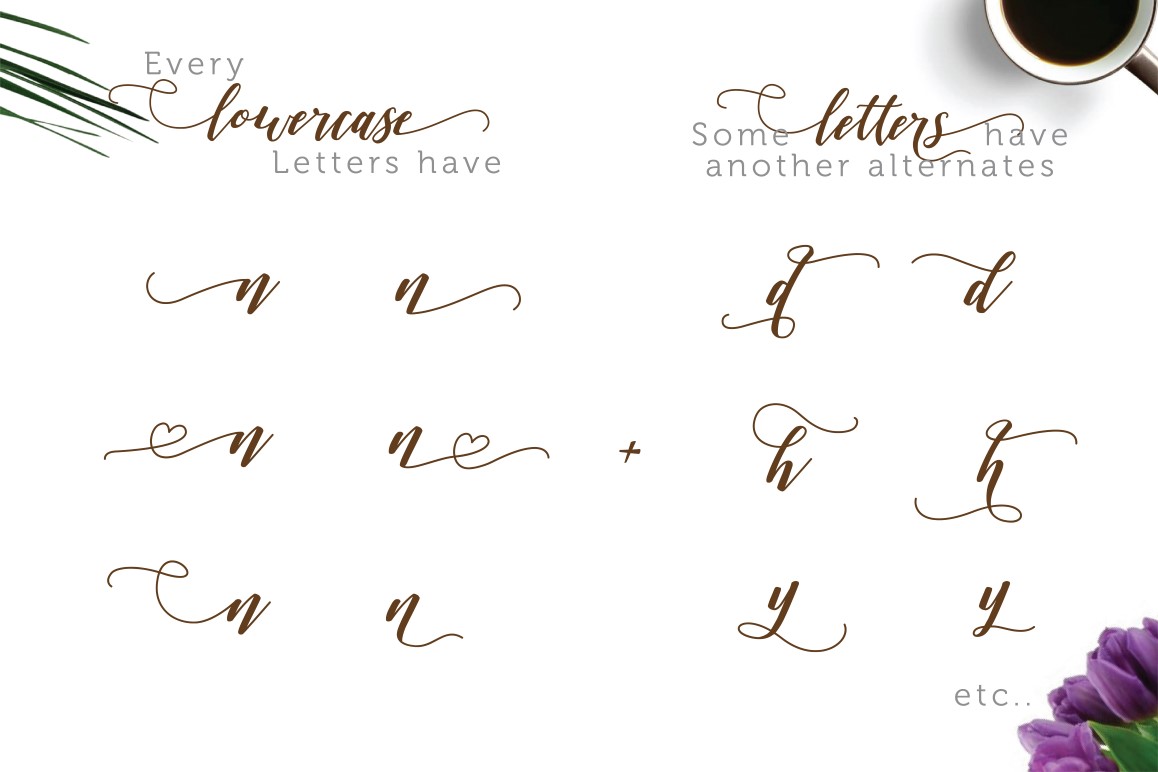 Every
lowercase
Letters have
Some letters have
another alternates
n n
n n
n n
+
d d
h h
y y
etc..